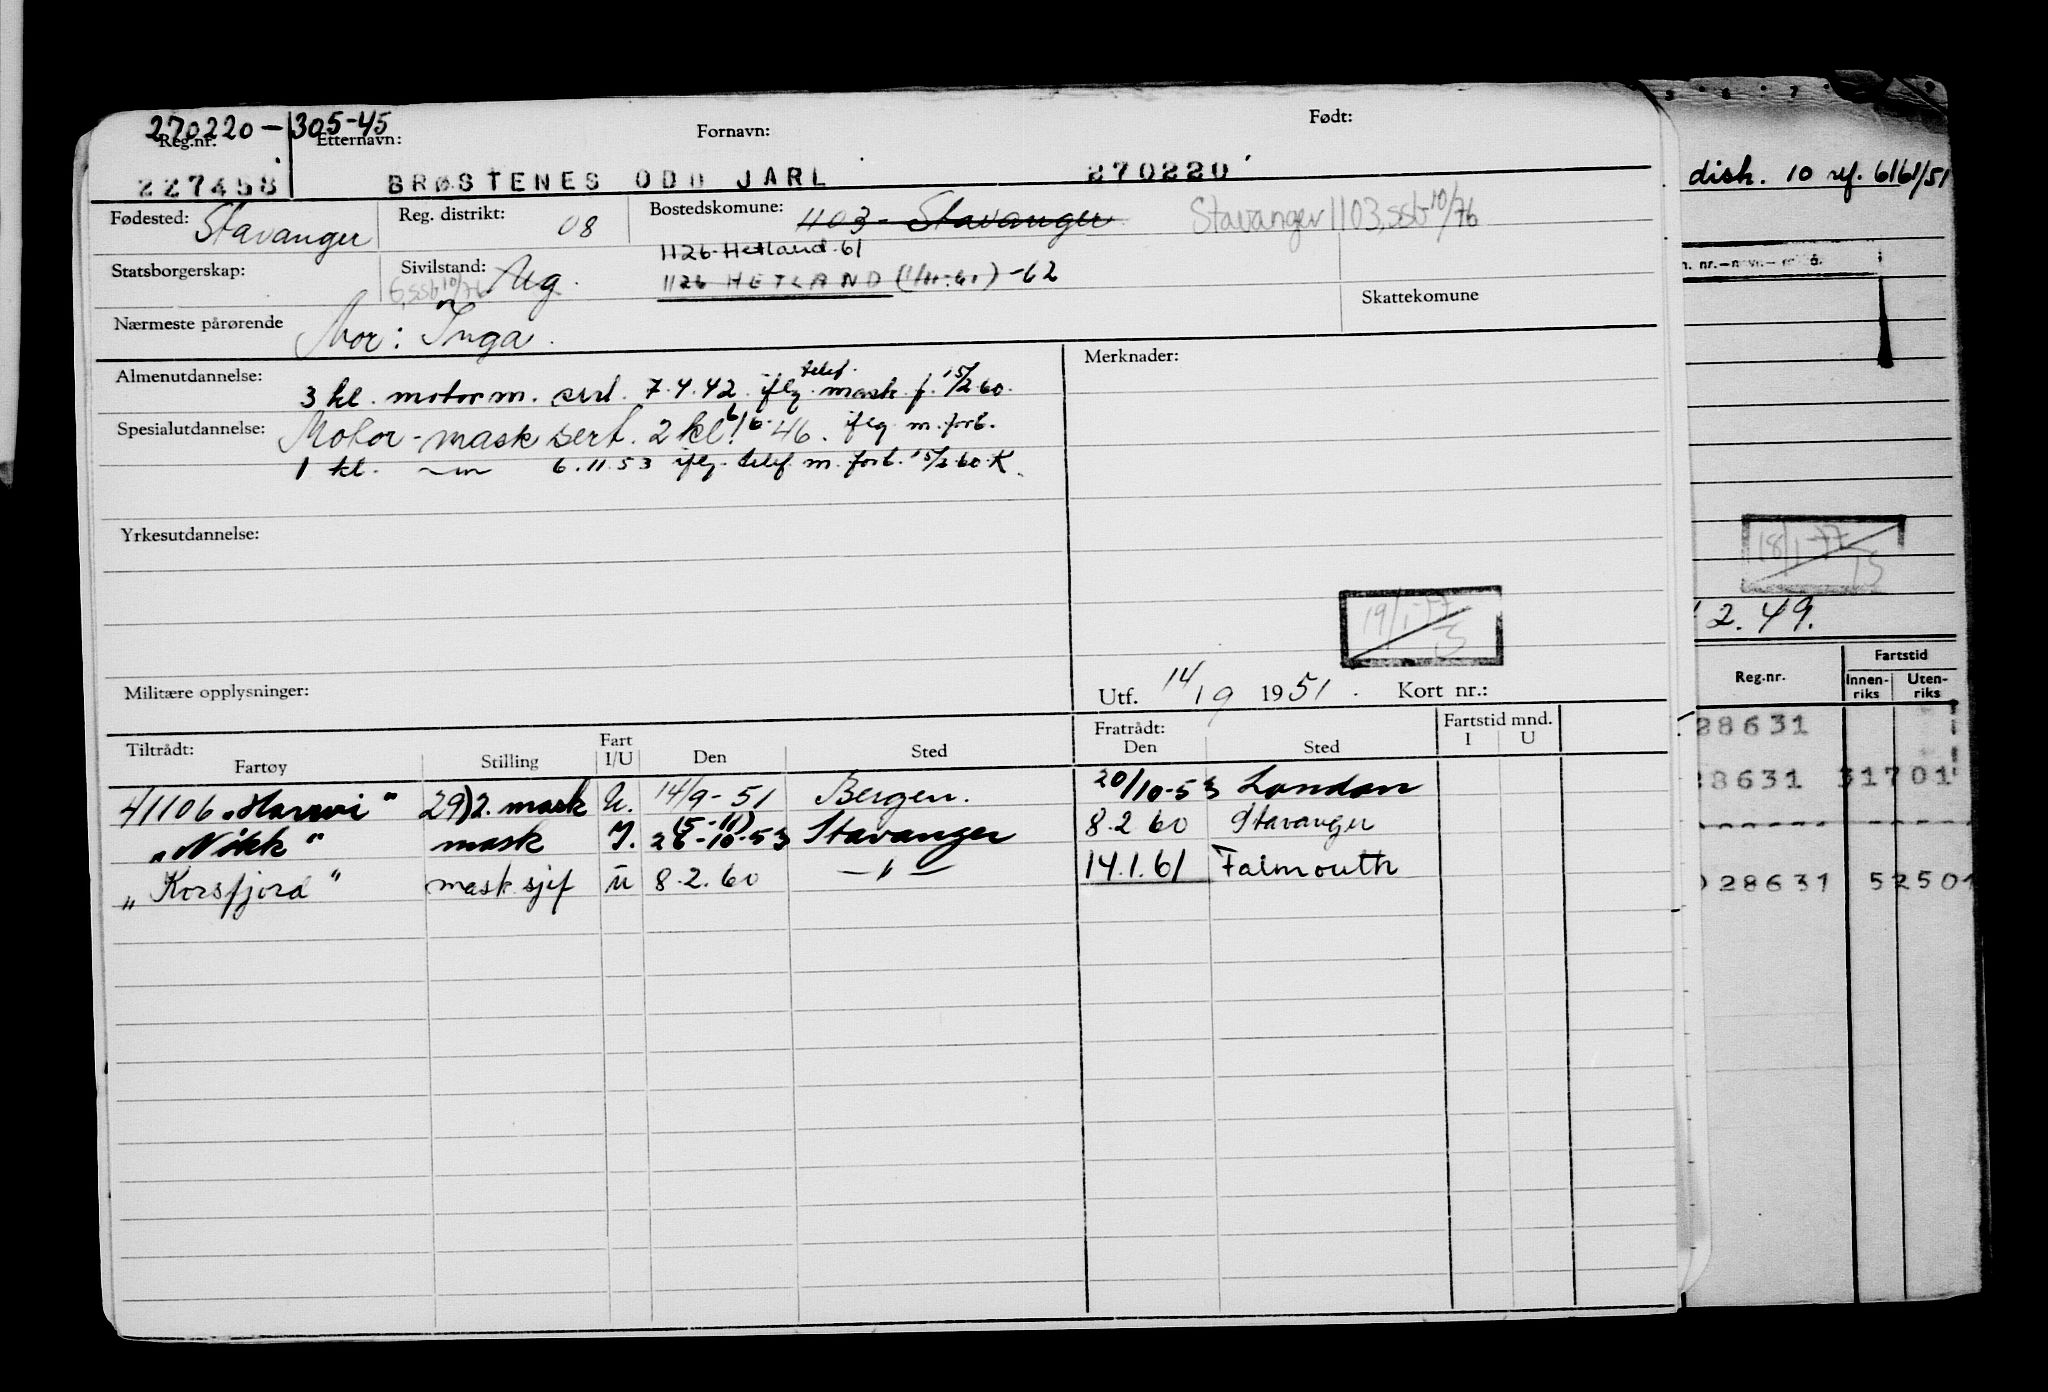 270220-305-45
Reg.nr. Etternavn: Fornavn: Født:
227458 BRØSTENES ODD JARL 270220
Fødested: Stavanger Reg. distrikt: 08 Bostedskomune: 1103 - Stavanger Stavanger 1103, SSb 10/76
1126-Hetland-61
Statsborgerskap: Sivilstand: Ug. 1126 HETLAND -62
6, SSb 10/76
Skattekomune
Nærmeste pårørende Mor: Inga.
Almenutdannelse: 3 kl. motorm. sert. 7.4.42. iflg. telef. mask. f. 15/2.60. Merknader:
Spesialutdannelse: Motor-mask sert. 2 kl. 6/6-46. iflg m. forb.
1 kl. 6.11.53 iflg. telef m. forb. 15/2.60.K.
Yrkesutdannelse:
19/1-77
Militære opplysninger: Utf. 14/9 1951. Kort nr.:
Tiltrådt: Fratrådt: Fartstid mnd.
Fartøy Stilling Fart I/U Den Sted Den Sted I U
"Haravi" 29) 2. mask U. 14/9-51 Bergen. 20/10-53 London
"Nikk" mask I. 26-10-53 (5-11) Stavanger 8.2 60 Stavanger
"Korsfjord" mask sjef u 8.2.60 — " — 14.1.61 Falmouth
disk. 10 ref. 6161/51
18/1-77
2.49.
Reg.nr. Fartstid
Innen-riks Uten-riks
28631
8631 31701
28631 52501